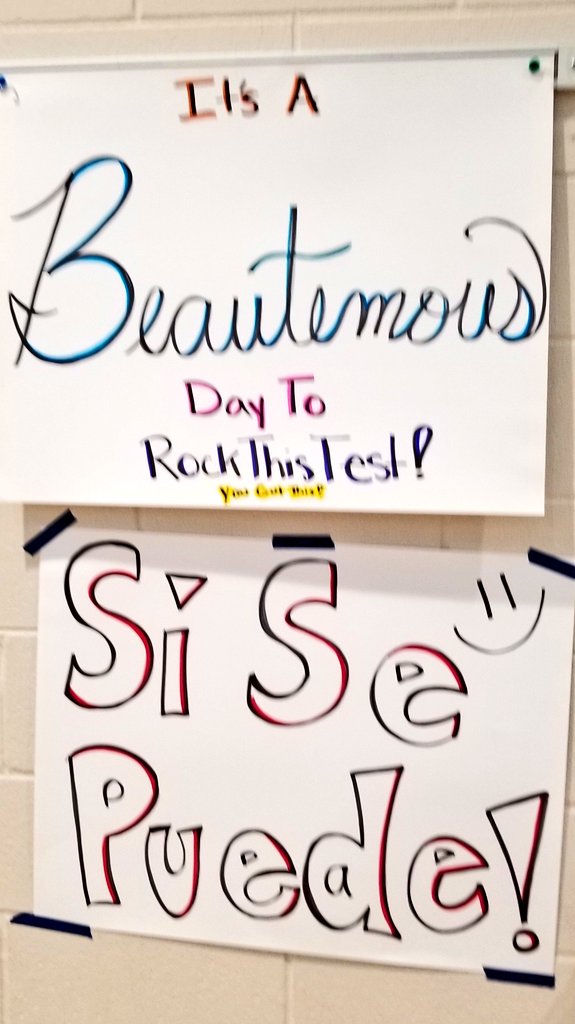 It's A
Beautemous
Day To
Rock This Test!
You Got This!
Sí Se
Puede!